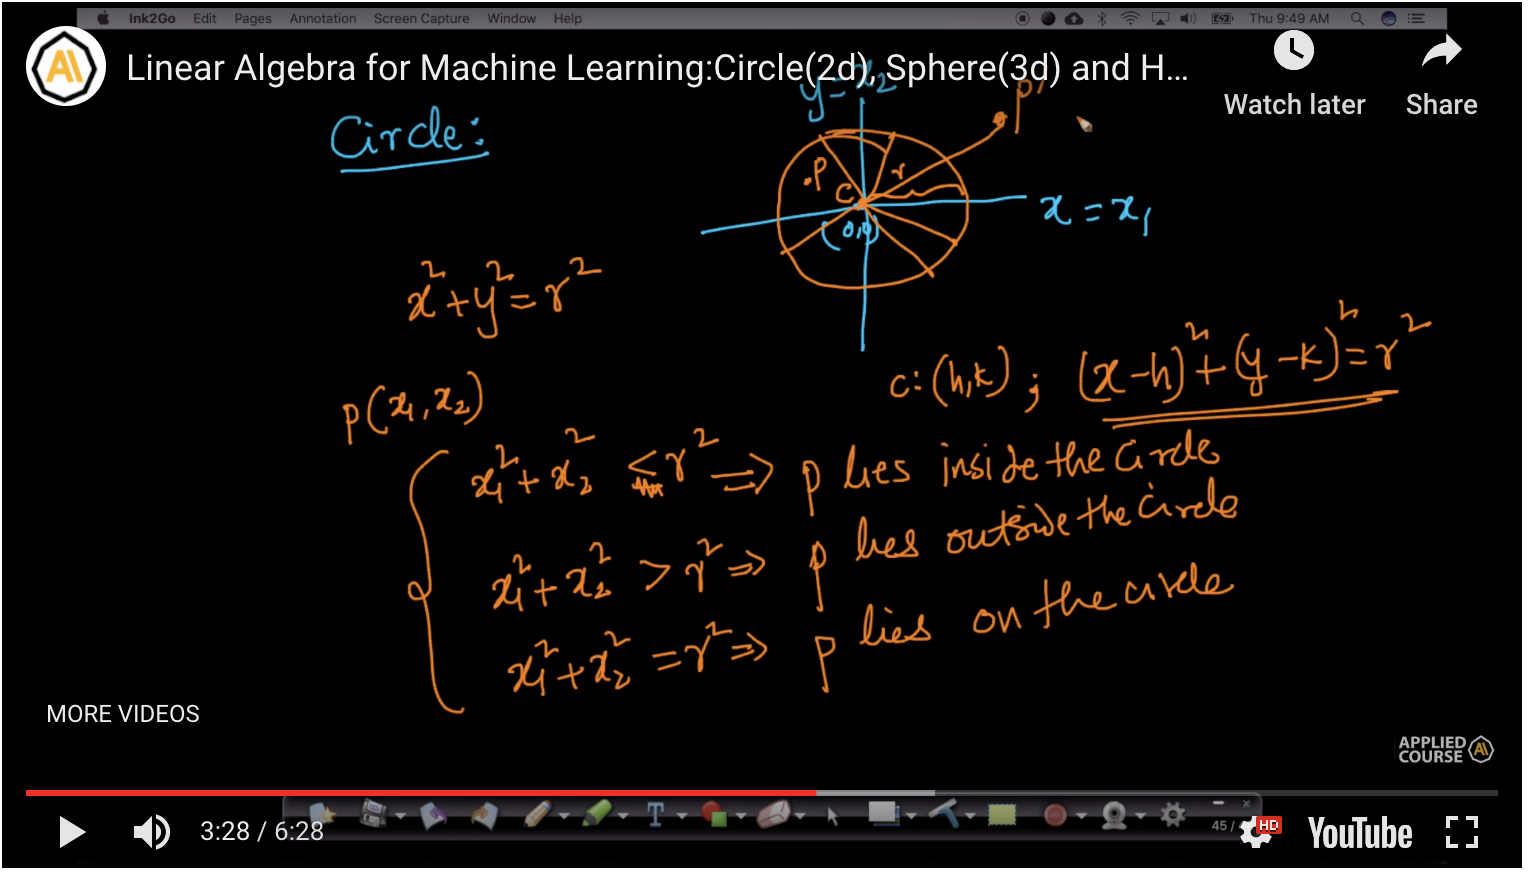 Ink2Go Edit Pages Annotation Screen Capture Window Help Thu 9:49 AM
Linear Algebra for Machine Learning:Circle(2d), Sphere(3d) and H...
Watch later Share
Circle:
y = x₂
p'
.p
r
c
(0,0)
x = x₁
x² + y² = r²
c: (h,k) ; (x-h)² + (y-k)² = r²
p(x₁, x₂)
x₁² + x₂² < r² ⇒ p lies inside the circle
x₁² + x₂² > r² ⇒ p lies outside the circle
x₁² + x₂² = r² ⇒ p lies on the circle
MORE VIDEOS
APPLIED
COURSE
3:28 / 6:28
T
45 /
HD
YouTube